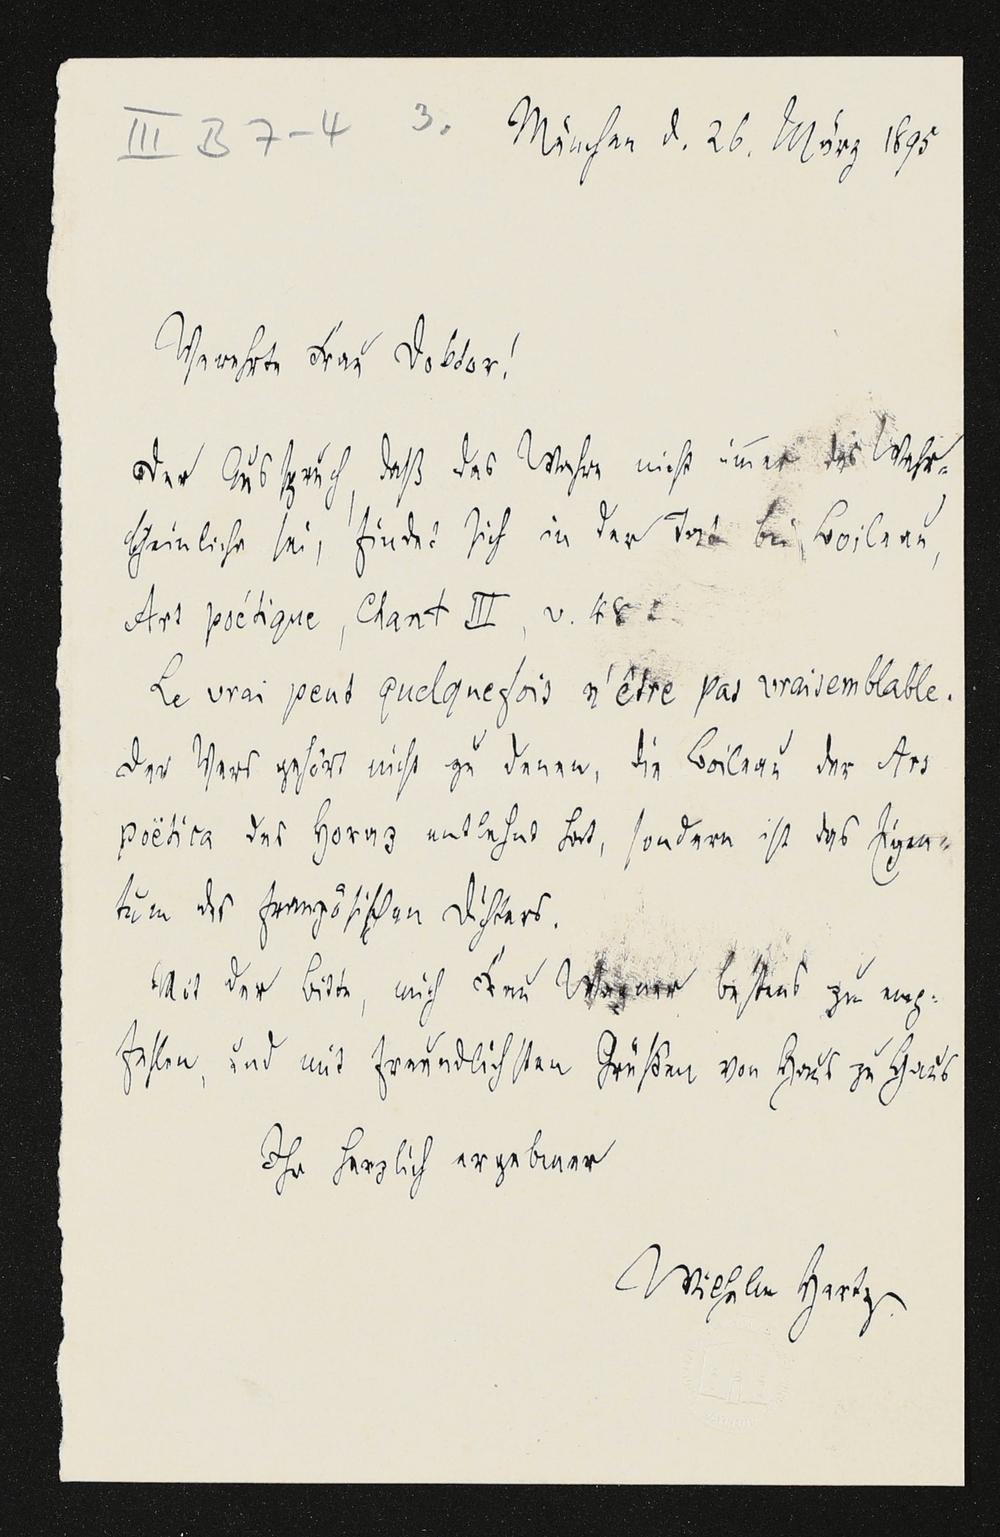 III B 7-4 3. München d. 26. März 1895
Verehrte Frau Doktor!
Der Ausspruch, daß das Wahre nicht immer das Wahr-
scheinliche sei, findet sich in der Tat bei Boileau,
Art poétique, Chant III, v. 48
Le vrai peut quelquefois n'être pas vraisemblable.
Der Vers gehört nicht zu denen, die Boileau der Ars
poëtica des Horaz entlehnt hat, sondern ist das Eigen-
tum des französischen Dichters.
Mit der Bitte, mich Frau Wagner bestens zu emp-
fehlen, und mit freundlichsten Grüßen von Haus zu Haus
Ihr herzlich ergebener
Wilhelm Hertz.